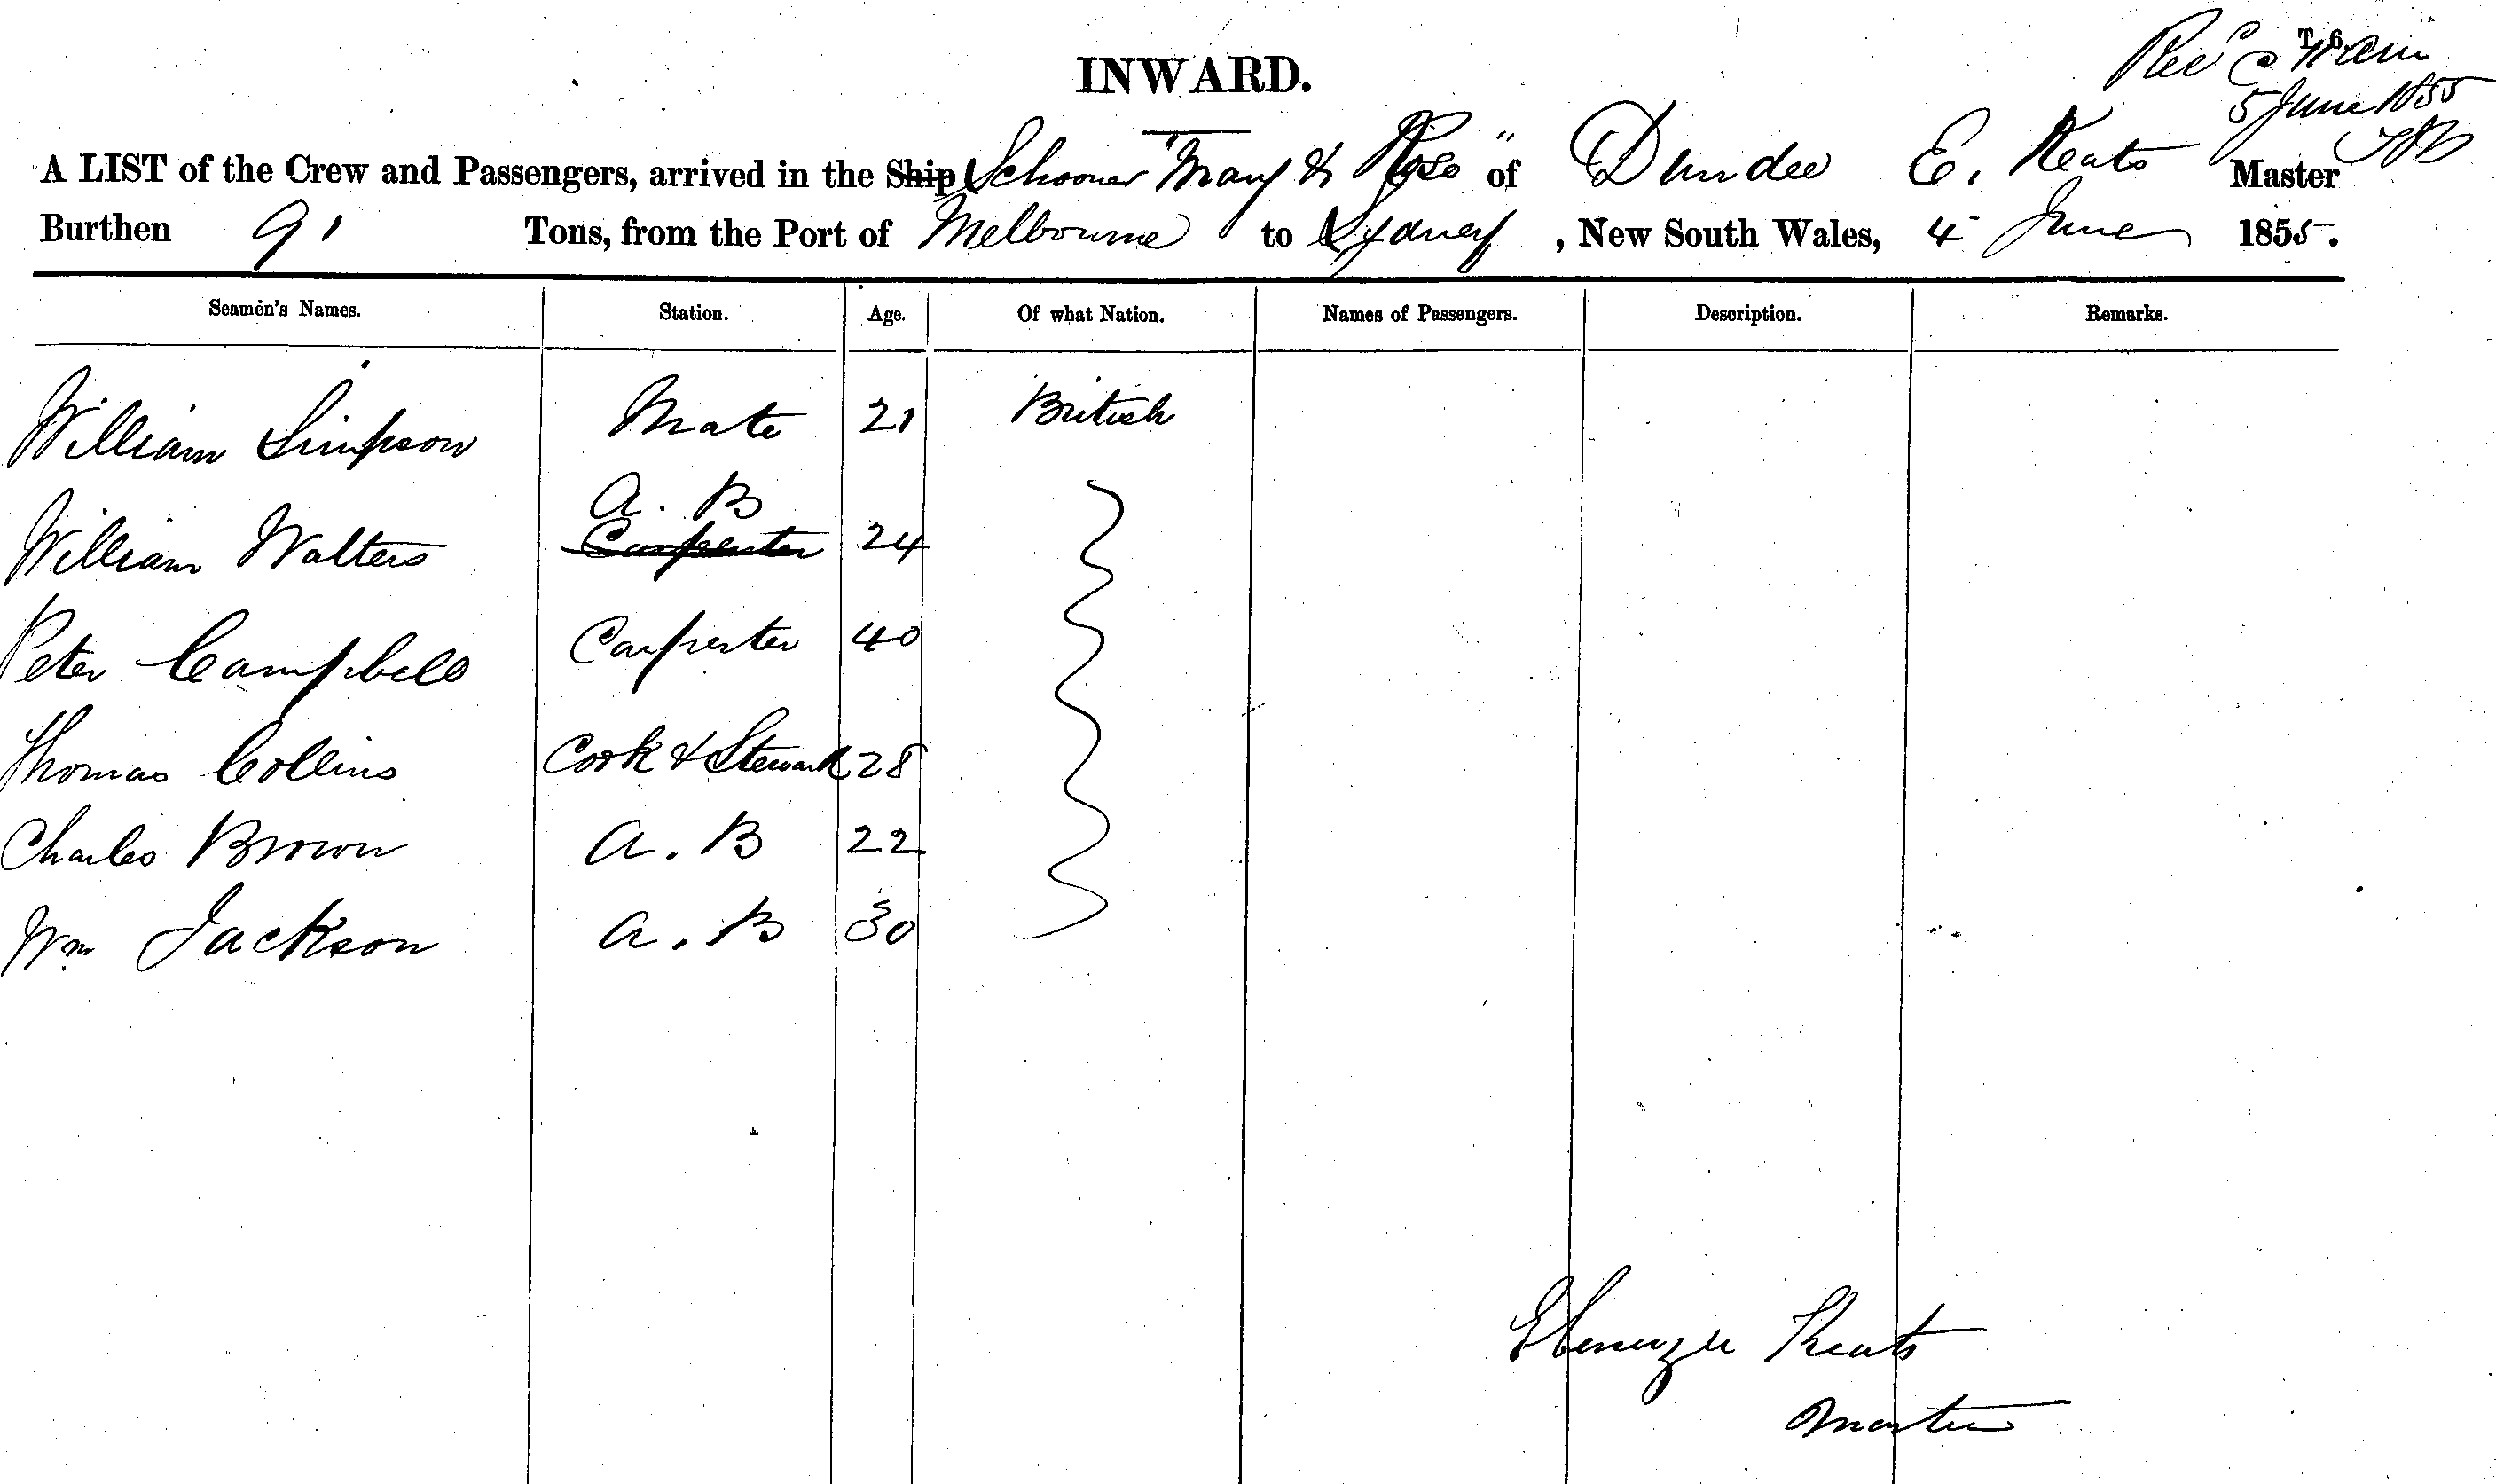 INWARD.
T. 6.
5 June 1855
A LIST of the Crew and Passengers, arrived in the Ship Schooner "Mary & Rose" of Dundee E. Keats Master
Burthen 91 Tons, from the Port of Melbourne to Sydney, New South Wales, 4 June 1855.
Seamen's Names. Station. Age. Of what Nation. Names of Passengers. Description. Remarks.
William Simpson Mate 21 British
A. B
William Walters Carpenter 24
Peter Campbell Carpenter 40
Thomas Collins Cook & Steward 28
Charles Brown A. B 22
Wm Jackson A. B 30
Ebenezer Keats
Master